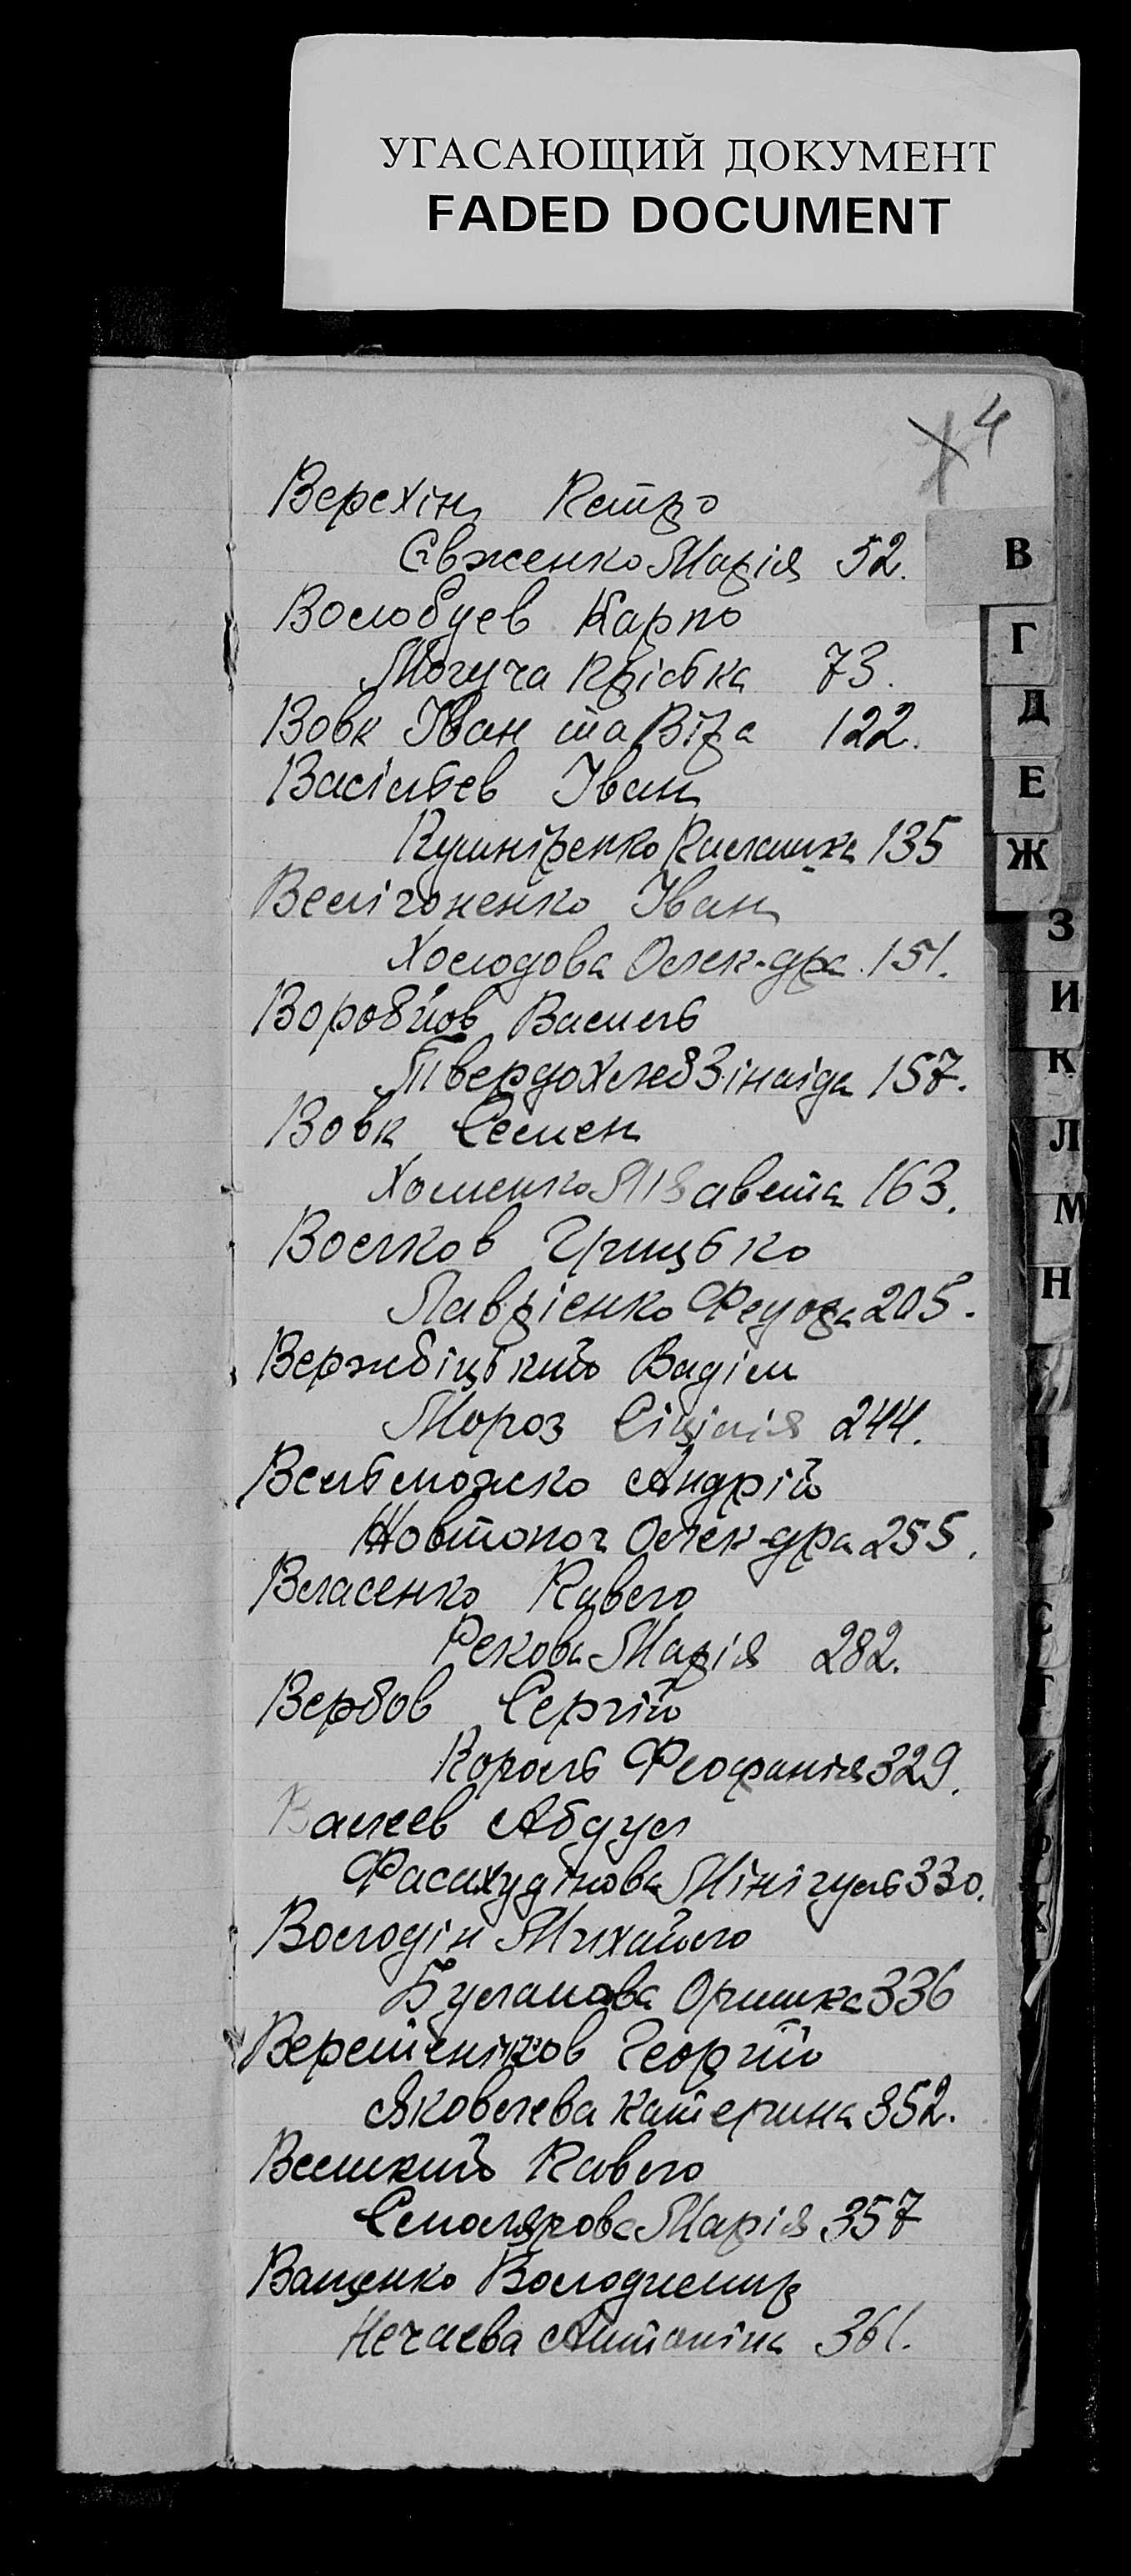 УГАСАЮЩИЙ ДОКУМЕНТ
FADED DOCUMENT
4
Верехін Петро
Євженко Марія 52.
Волобуев Карпо
Могуча Пріська 73.
Вовк Іван та Віра 122.
Васільев Іван
Кушніренко Палашка 135
Велігоненко Іван
Холодова Олек-дра 151.
Воробйов Василь
Твердохлеб Зінаіда 157.
Вовк Семен
Хоменко Лізавета 163.
Волков Грицько
Лаврієнко Федора 205.
Вержбіцький Вадім
Мороз Сіцілія 244.
Вельможко Андрій
Жовтоног Олек-дра 255.
Власенко Павло
Рекова Марія 282.
Вербов Сергій
Король Феофанія 329.
Валеев Абдул
Фасахудінова Мінігуль 330.
Володін Михайло
Буланова Оришка 336
Веретеніков Георгій
Яковлева Катерина 352.
Великий Павло
Смолярова Марія 357
Ващенко Володимир
Нечаева Антоніна 361.
В
Г
Д
Е
Ж
З
И
К
Л
М
Н
П
Р
С
Т